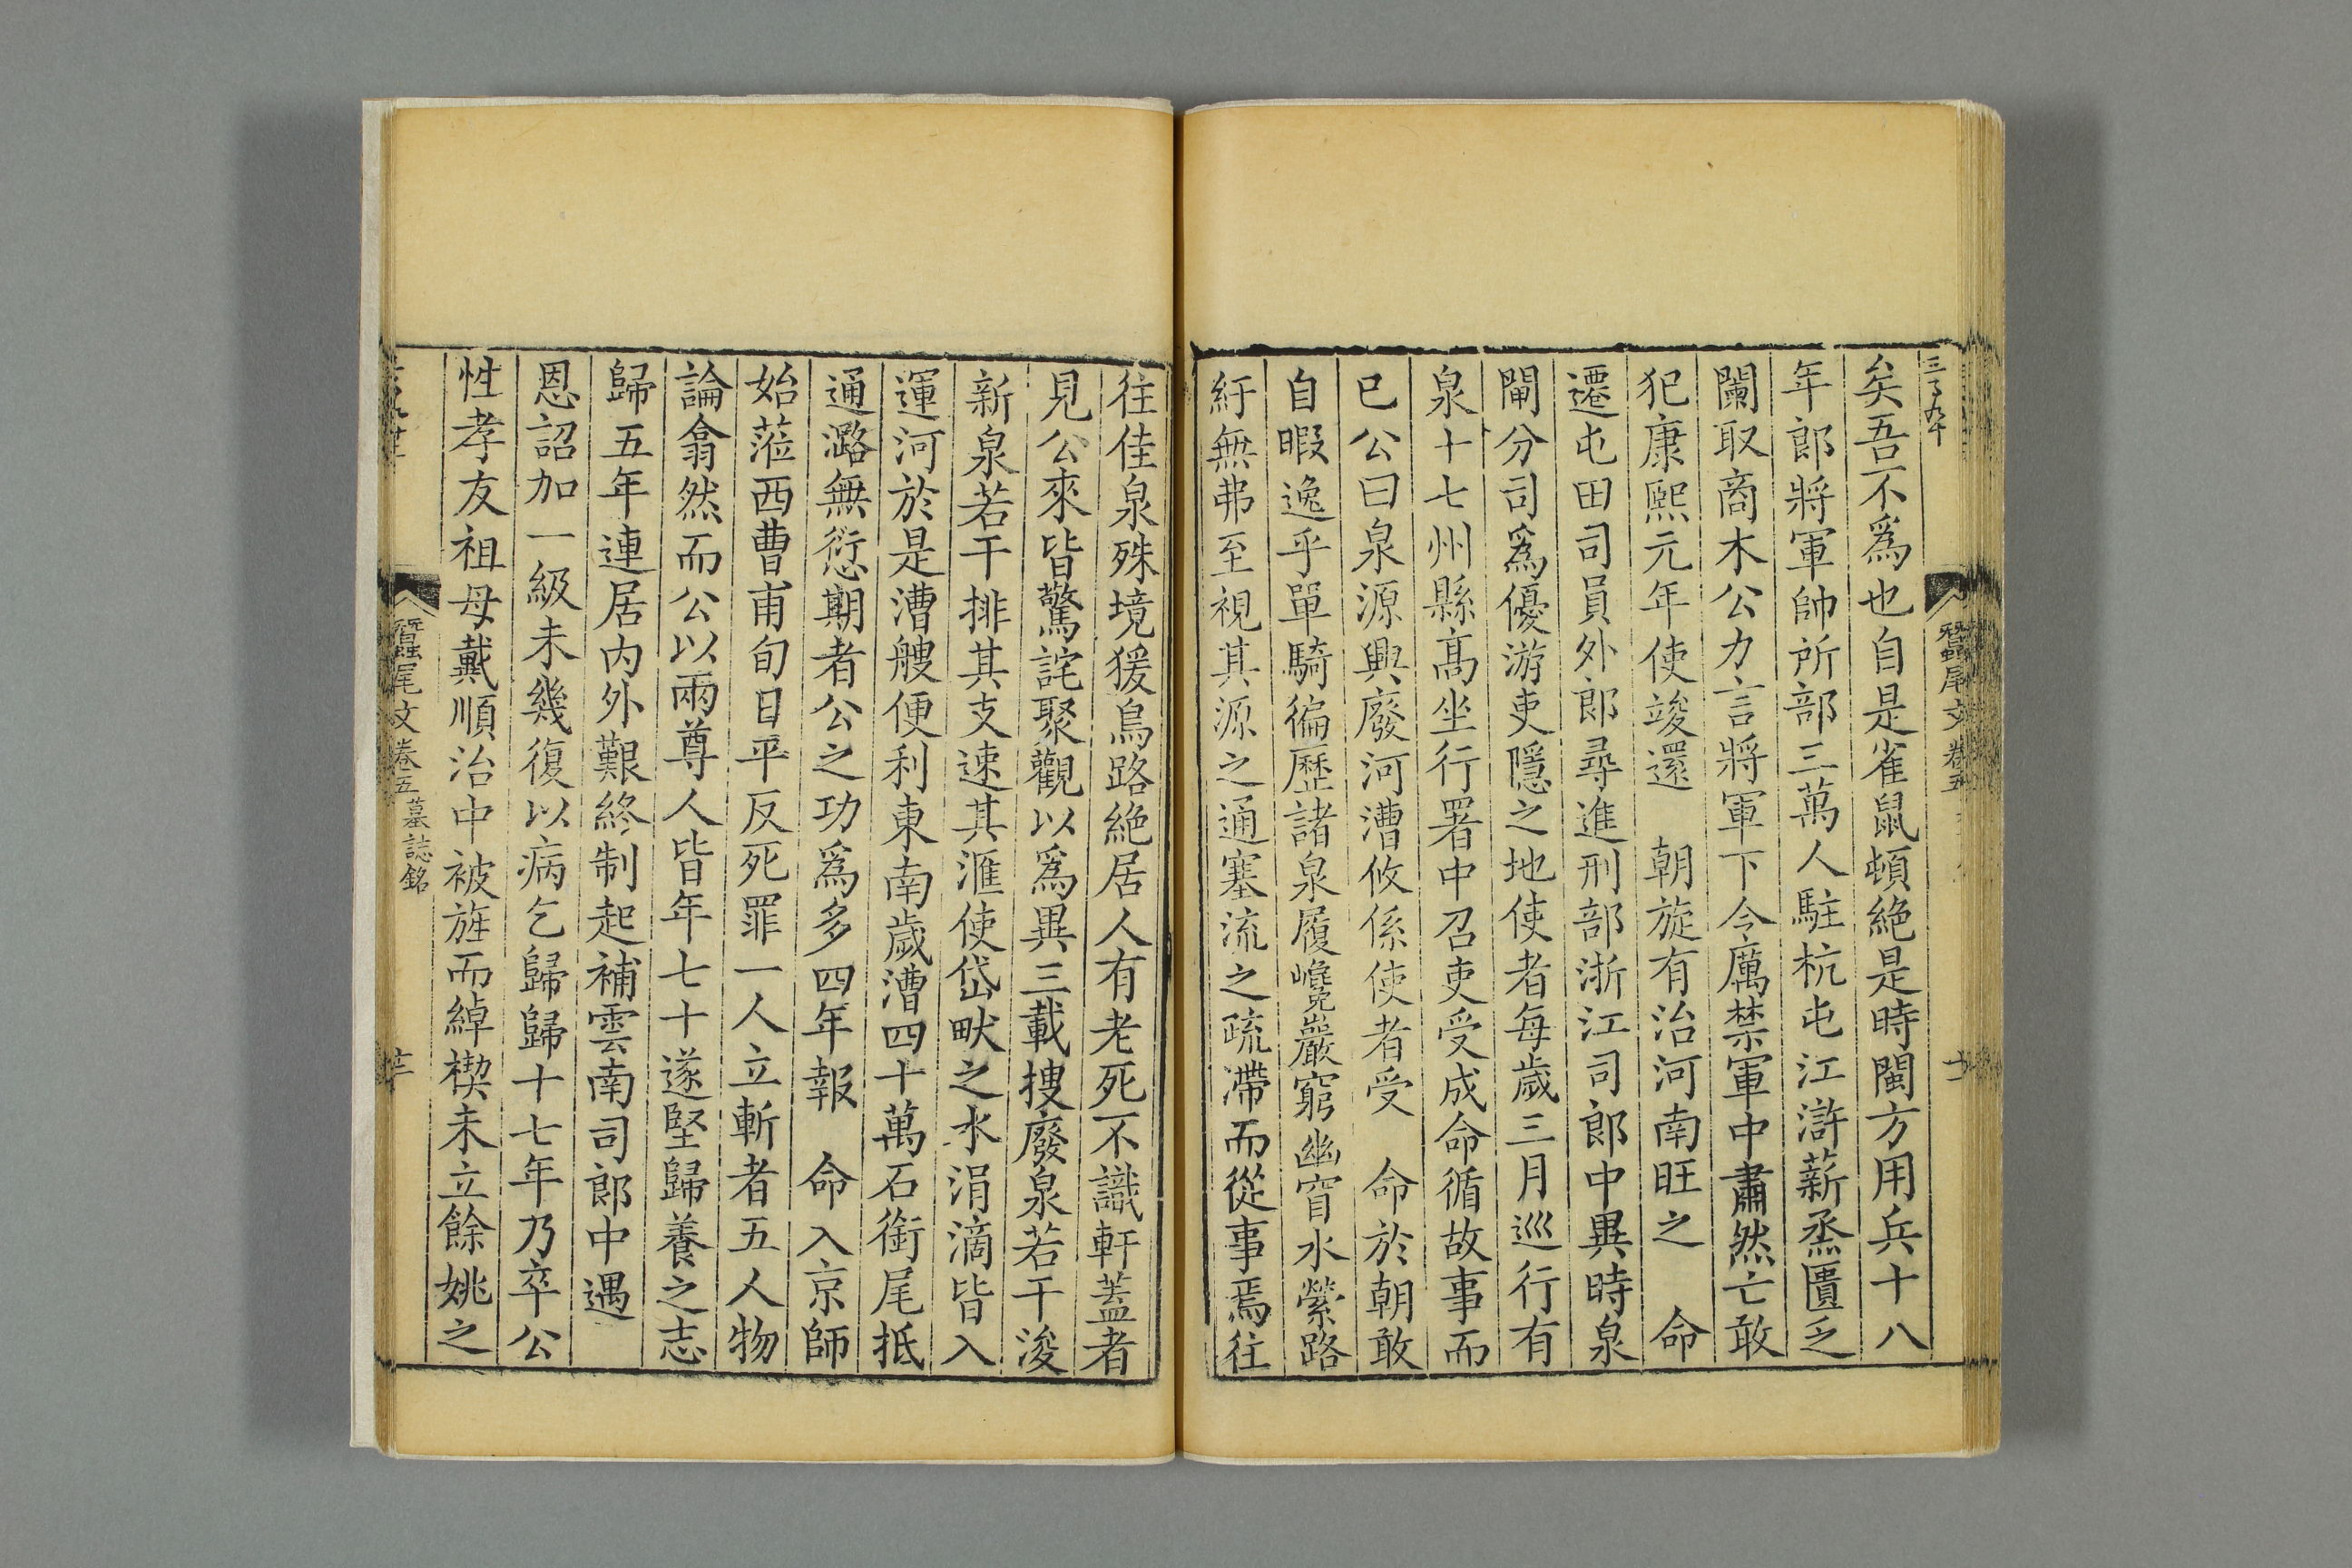 矣吾不爲也自是雀鼠頓絶是時閩方用兵十八
年郎將軍帥所部三萬人駐杭屯江滸薪烝匱乏
闌取商木公力言將軍下令厲禁軍中肅然亡敢
犯康熙元年使竣還　朝旋有治河南旺之　命
遷屯田司員外郎尋進刑部浙江司郎中異時泉
閘分司爲優游吏隱之地使者每歲三月巡行有
泉十七州縣高坐行署中召吏受成命循故事而
已公曰泉源興廢河漕攸係使者受　命於朝敢
自暇逸乎單騎徧歷諸泉履巉巖窮幽窅水縈路
紆無弗至視其源之通塞流之疏滯而從事焉往
蠶尾文卷五
往佳泉殊境猨鳥路絶居人有老死不識軒蓋者
見公來皆驚詫聚觀以爲異三載捜廢泉若干浚
新泉若干排其支速其滙使岱畎之水涓滴皆入
運河於是漕艘便利東南歲漕四十萬石銜尾抵
通潞無愆期者公之功爲多四年報　命入京師
始蒞西曹甫旬日平反死罪一人立斬者五人物
論翕然而公以兩尊人皆年七十遂堅歸養之志
歸五年連居内外艱終制起補雲南司郎中遇
恩詔加一級未幾復以病乞歸歸十七年乃卒公
性孝友祖母戴順治中被旌而綽楔未立餘姚之
蠶尾文卷五墓誌銘